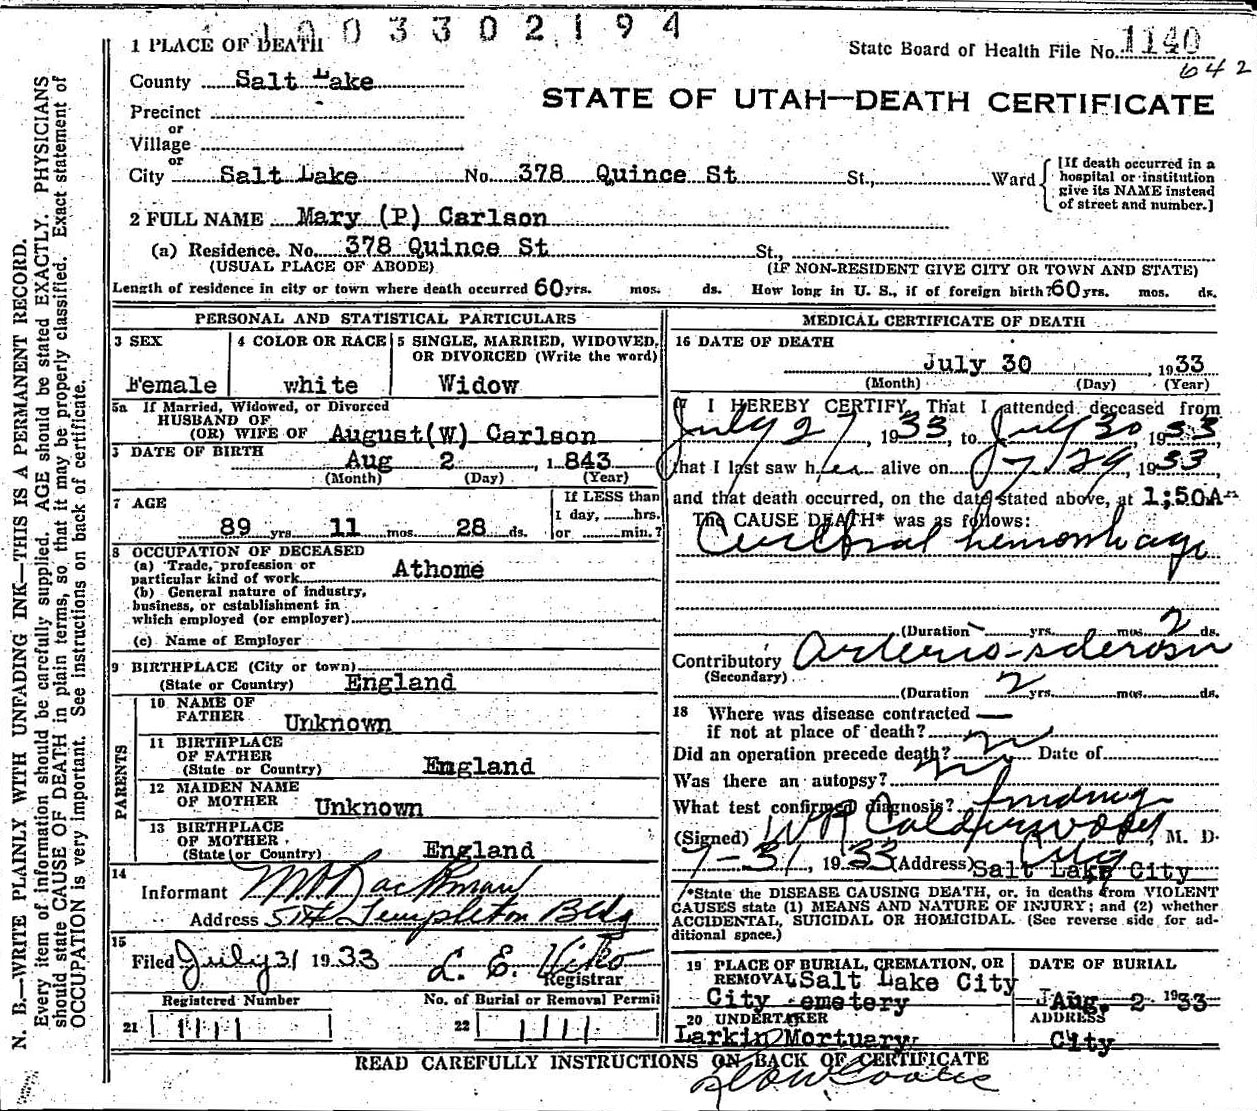 1003302194
1 PLACE OF DEATH
State Board of Health File No. 1140
642
County Salt Lake
STATE OF UTAH—DEATH CERTIFICATE
Precinct
or
Village
or
City Salt Lake No. 378 Quince St St., Ward
[If death occurred in a
hospital or institution
give its NAME instead
of street and number.]
2 FULL NAME Mary (P) Carlson
(a) Residence. No. 378 Quince St St.,
(USUAL PLACE OF ABODE) (IF NON-RESIDENT GIVE CITY OR TOWN AND STATE)
Length of residence in city or town where death occurred 60 yrs. mos. ds. How long in U. S., if of foreign birth? 60 yrs. mos. ds.
PERSONAL AND STATISTICAL PARTICULARS
3 SEX
Female
4 COLOR OR RACE
white
5 SINGLE, MARRIED, WIDOWED,
OR DIVORCED (Write the word)
Widow
5a If Married, Widowed, or Divorced
HUSBAND OF
(OR) WIFE OF August (W) Carlson
DATE OF BIRTH
Aug 2 , 1843
(Month) (Day) (Year)
7 AGE
89 yrs. 11 mos. 28 ds.
If LESS than
1 day, hrs.
or min.?
8 OCCUPATION OF DECEASED
(a) Trade, profession or
particular kind of work Athome
(b) General nature of industry,
business, or establishment in
which employed (or employer)
(c) Name of Employer
9 BIRTHPLACE (City or town)
(State or Country) England
PARENTS
10 NAME OF
FATHER Unknown
11 BIRTHPLACE
OF FATHER
(State or Country) England
12 MAIDEN NAME
OF MOTHER Unknown
13 BIRTHPLACE
OF MOTHER
(State or Country) England
14
Informant
Address Templeton Bldg
15
Filed July 31 1933 L. E. Viko
Registrar
Registered Number No. of Burial or Removal Permit
21 1111 22 1111
MEDICAL CERTIFICATE OF DEATH
16 DATE OF DEATH
July 30 , 1933
(Month) (Day) (Year)
I HEREBY CERTIFY, That I attended deceased from
July 27, 1933, to July 30, 1933
that I last saw her alive on 7/29, 1933,
and that death occurred, on the date stated above, at 1:50A m
The CAUSE DEATH* was as follows:
Cerebral hemorrhage
(Duration yrs. mos. 2 ds.
Contributory Arterio-sclerosis
(Secondary)
(Duration 2 yrs. mos. ds.
18 Where was disease contracted —
if not at place of death?
Did an operation precede death? no Date of
Was there an autopsy? no
What test confirmed diagnosis? findings
(Signed) W R Calderwood, M. D.
7-31, 1933 (Address) Salt Lake City
City
*State the DISEASE CAUSING DEATH, or, in deaths from VIOLENT
CAUSES state (1) MEANS AND NATURE OF INJURY; and (2) whether
ACCIDENTAL, SUICIDAL OR HOMICIDAL. (See reverse side for ad-
ditional space.)
19 PLACE OF BURIAL, CREMATION, OR
REMOVAL Salt Lake City
City emetery
DATE OF BURIAL
Aug. 2 1933
20 UNDERTAKER
Larkin Mortuary
ADDRESS
City
READ CAREFULLY INSTRUCTIONS ON BACK OF CERTIFICATE
N. B.—WRITE PLAINLY WITH UNFADING INK—THIS IS A PERMANENT RECORD.
Every item of information should be carefully supplied. AGE should be stated EXACTLY. PHYSICIANS
should state CAUSE OF DEATH in plain terms, so that it may be properly classified. Exact statement of
OCCUPATION is very important. See instructions on back of certificate.